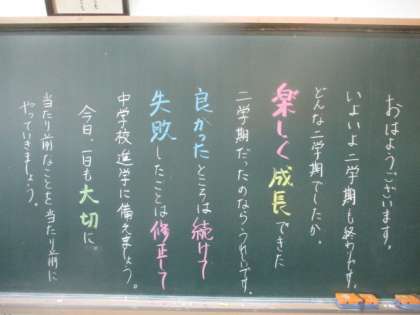 おはようございます。
いよいよ二学期も終わりです。
どんな二学期でしたか。
楽しく成長できた
二学期だったのならうれしいです。
良かったところは続けて
失敗したことは修正して
中学校進学に備えましょう。
今日、一日も大切に。
当たり前なことを当たり前に
やっていきましょう。